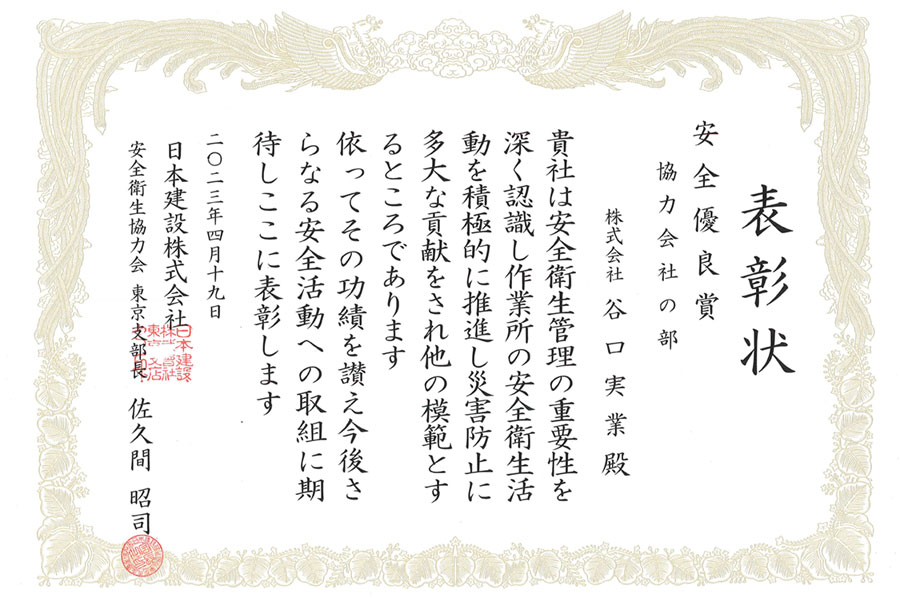 表彰状
安全優良賞
協力会社の部
株式会社 谷口実業殿
貴社は安全衛生管理の重要性を
深く認識し作業所の安全衛生活
動を積極的に推進し災害防止に
多大な貢献をされ他の模範とす
るところであります
依ってその功績を讃え今後さ
らなる安全活動への取組に期
待しここに表彰します
二〇二三年四月十九日
日本建設株式会社
安全衛生協力会 東京支部長 佐久間 昭司
日本建設
株式会社